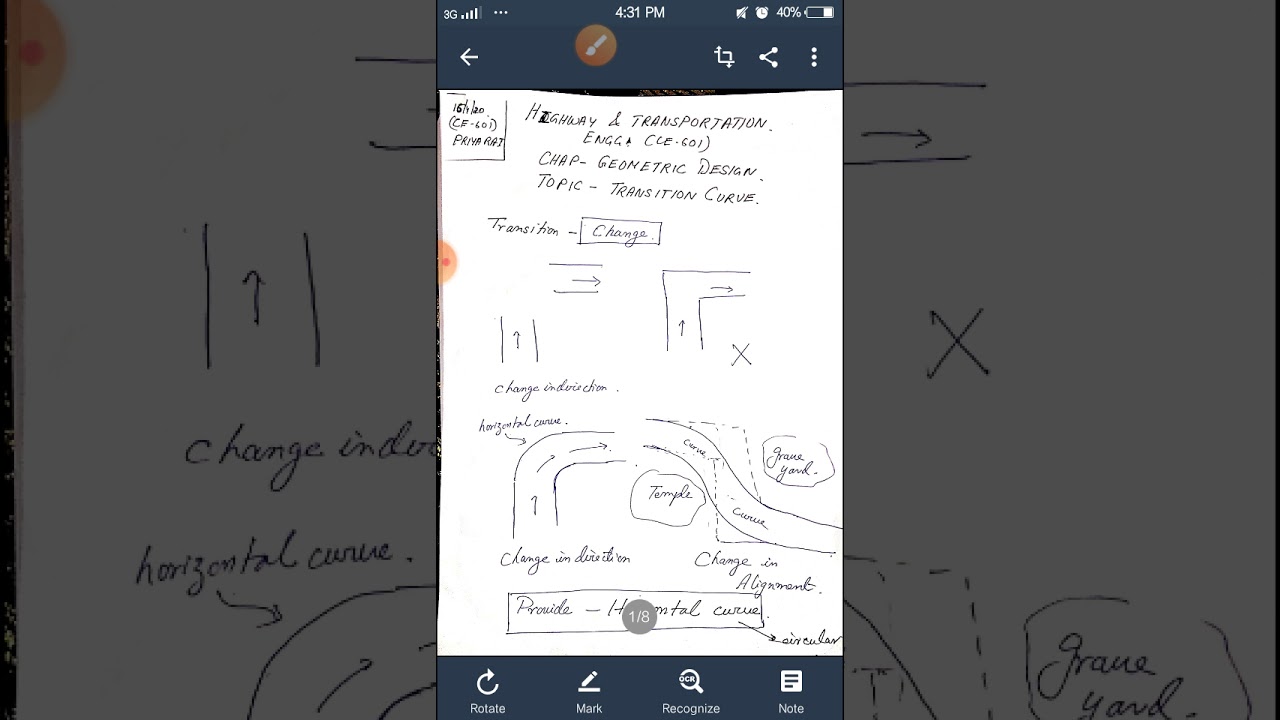 3G
4:31 PM
40%
15/1/20.
(CE-601)
PRIYA RAI
HIGHWAY & TRANSPORTATION.
ENGG. (CE-601)
CHAP- GEOMETRIC DESIGN.
TOPIC - TRANSITION CURVE.
Transition - Change.
change in direction.
horizontal curve.
curve
grave
yard.
Temple
Curve
Change in direction
Change in
Alignment.
Provide - H ntal curve.
1/8
circular
Rotate
Mark
OCR
Recognize
Note
change indirec
horizontal curve.
grave
yard